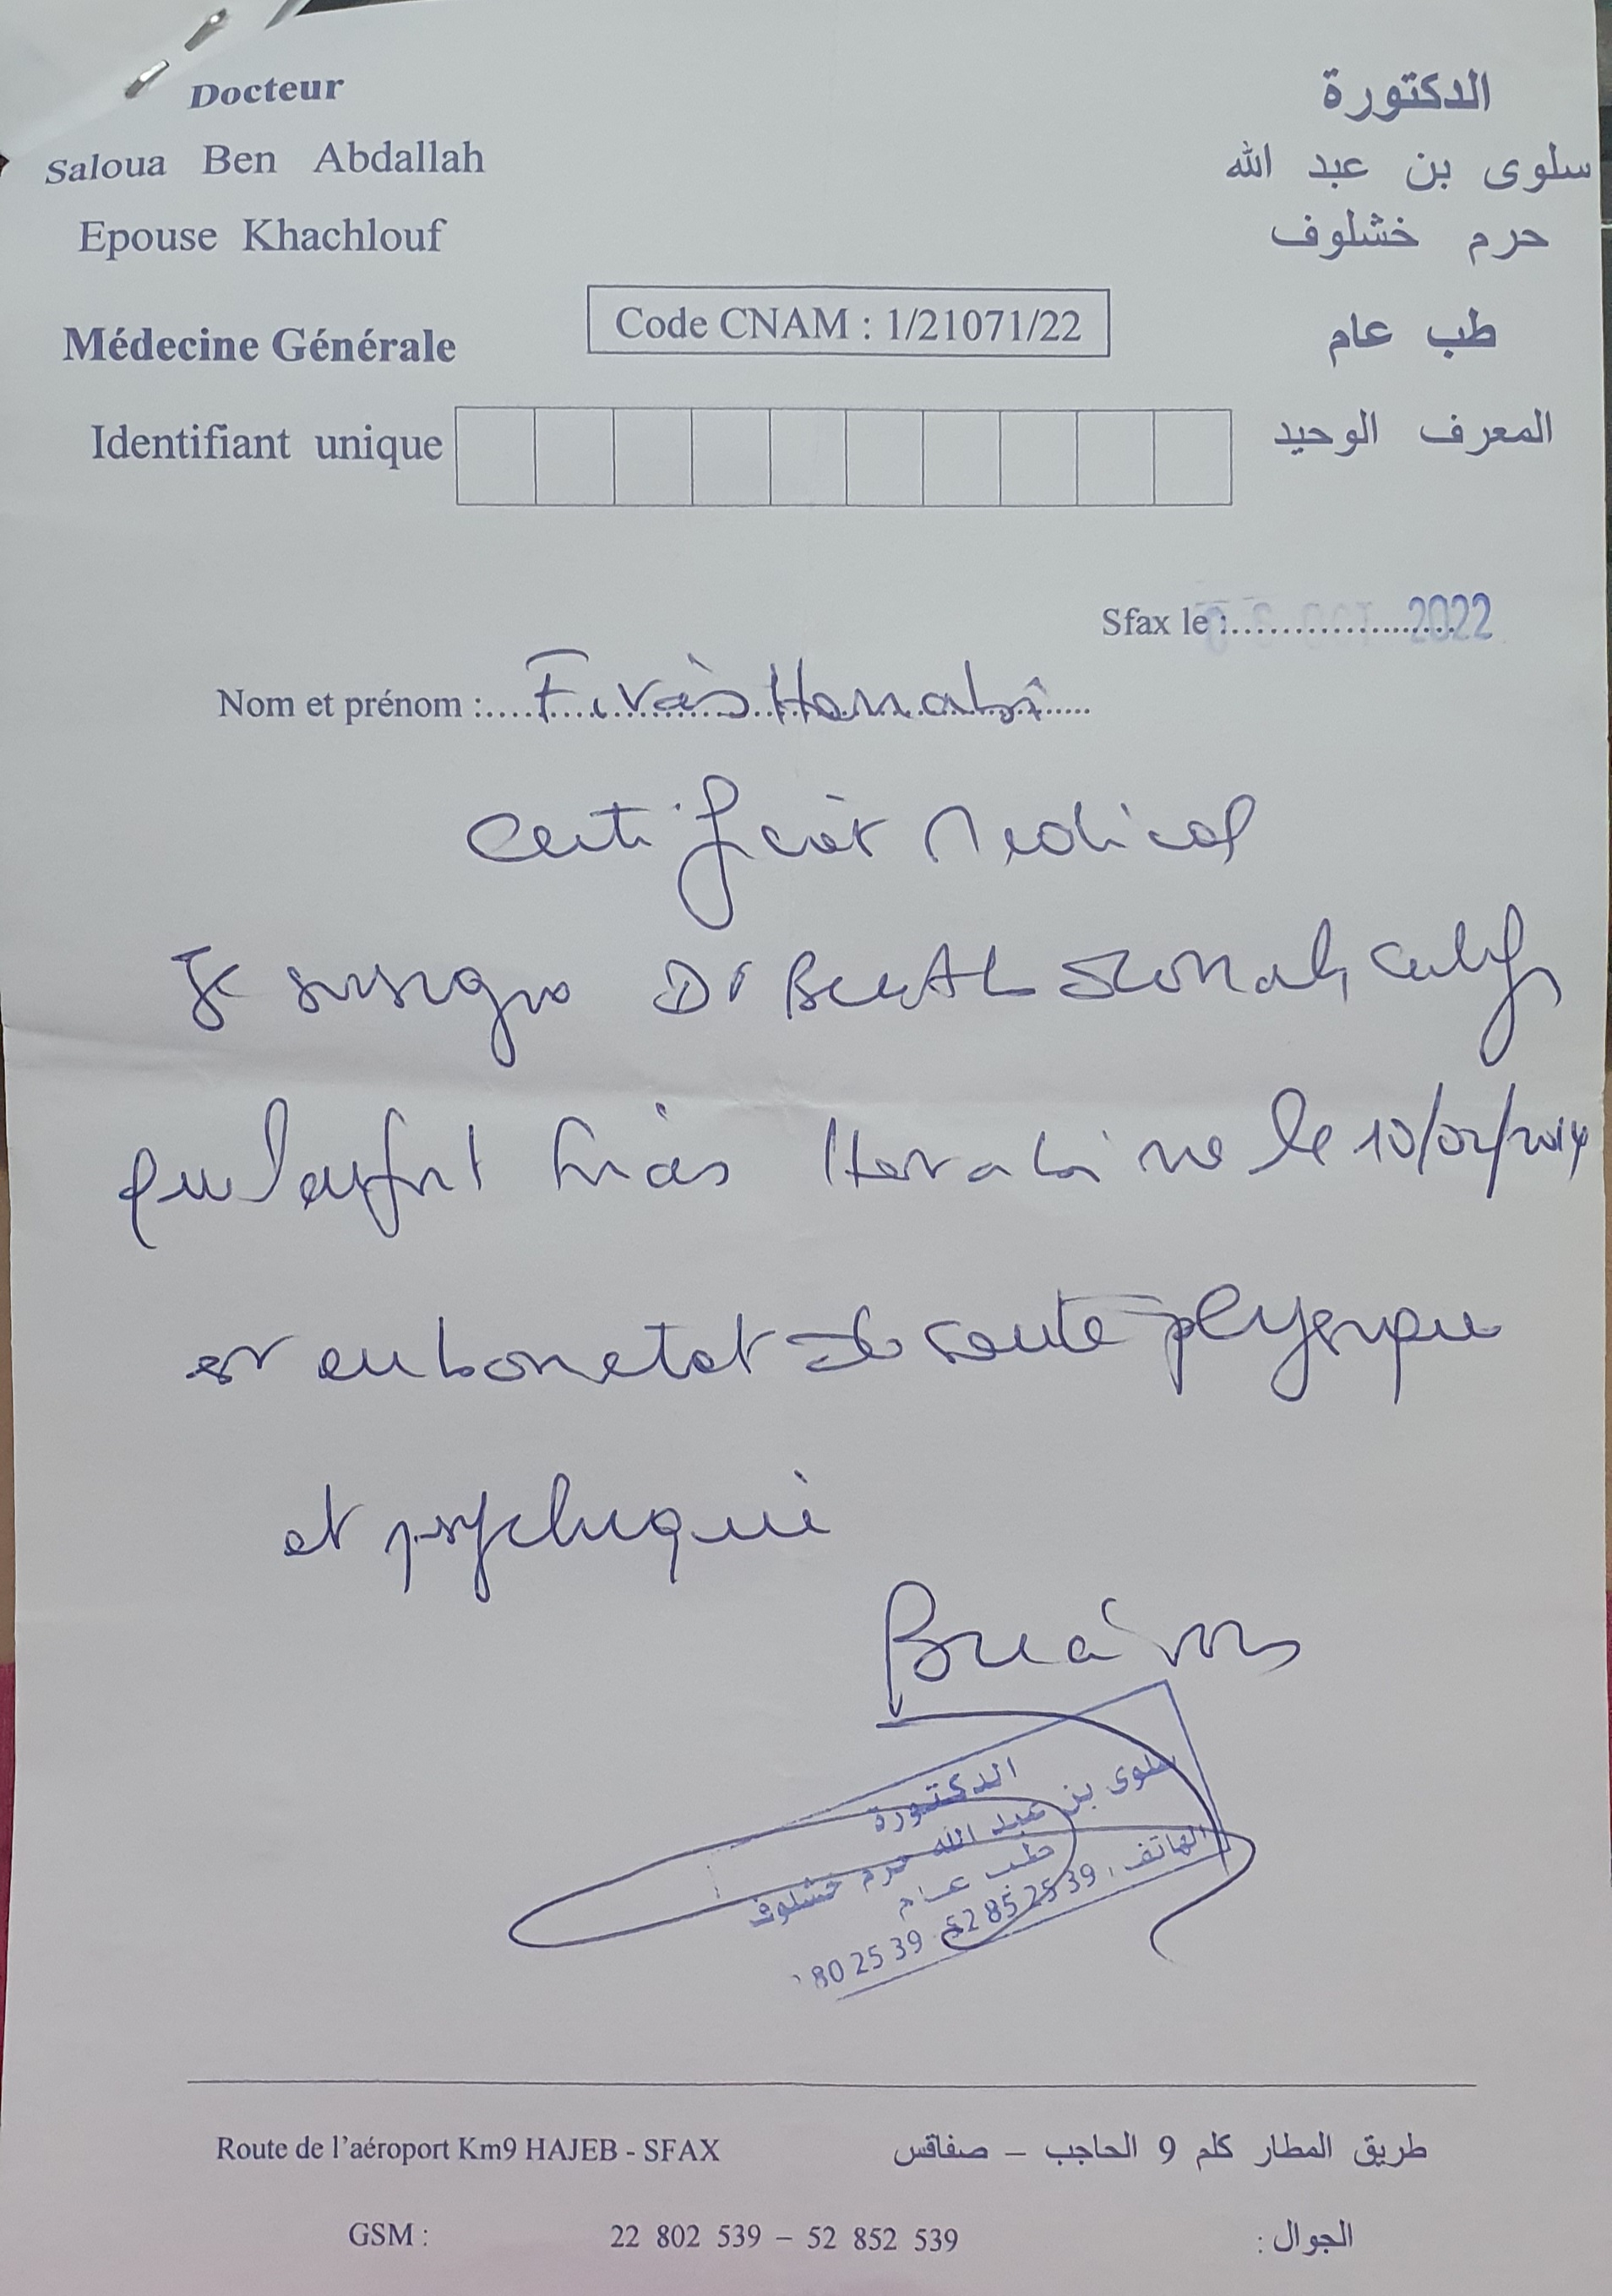 Docteur
الدكتورة
Saloua Ben Abdallah
سلوى بن عبد الله
Epouse Khachlouf
حرم خشلوف
Médecine Générale
Code CNAM : 1/21071/22
طب عام
Identifiant unique
المعرف الوحيد
Sfax le : 03 OCT 2022
Nom et prénom : Firas
Certificat Medical
Je soussigné Dr
que l'enfant Firas né le 10/02/2014
est en bon etat de santé physique
et psychique
الدكتورة
سلوى بن عبد الله حرم خشلوف
طب عام
الهاتف : 52 85 25 39
80 25 39
Route de l'aéroport Km9 HAJEB - SFAX
طريق المطار كلم 9 الحاجب – صفاقس
GSM : 22 802 539 – 52 852 539 الجوال :